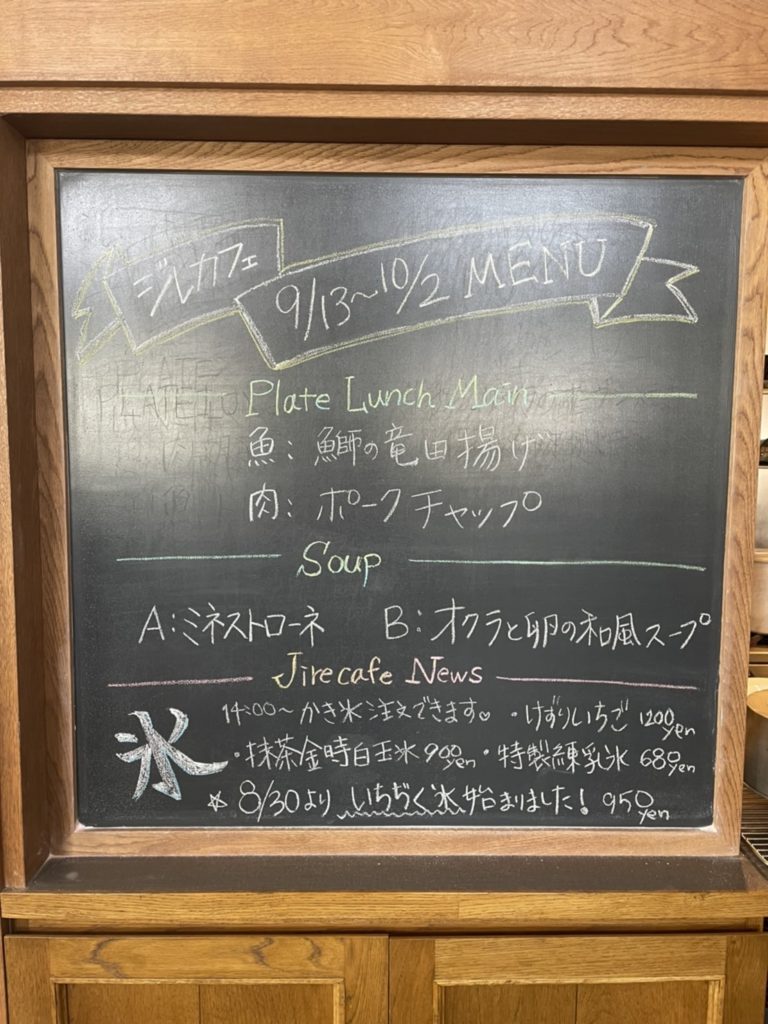 ジルカフェ 9/13~10/2 MENU
Plate Lunch Main
魚: 鰤の竜田揚げ
肉: ポークチャップ
Soup
A:ミネストローネ B:オクラと卵の和風スープ
Jirecafe News
氷 14:00~ かき氷注文できます♡ ・けずりいちご 1200yen
・抹茶金時白玉氷 900yen ・特製練乳氷 680yen
☆ 8/30より いちぢく氷始まりました! 950yen